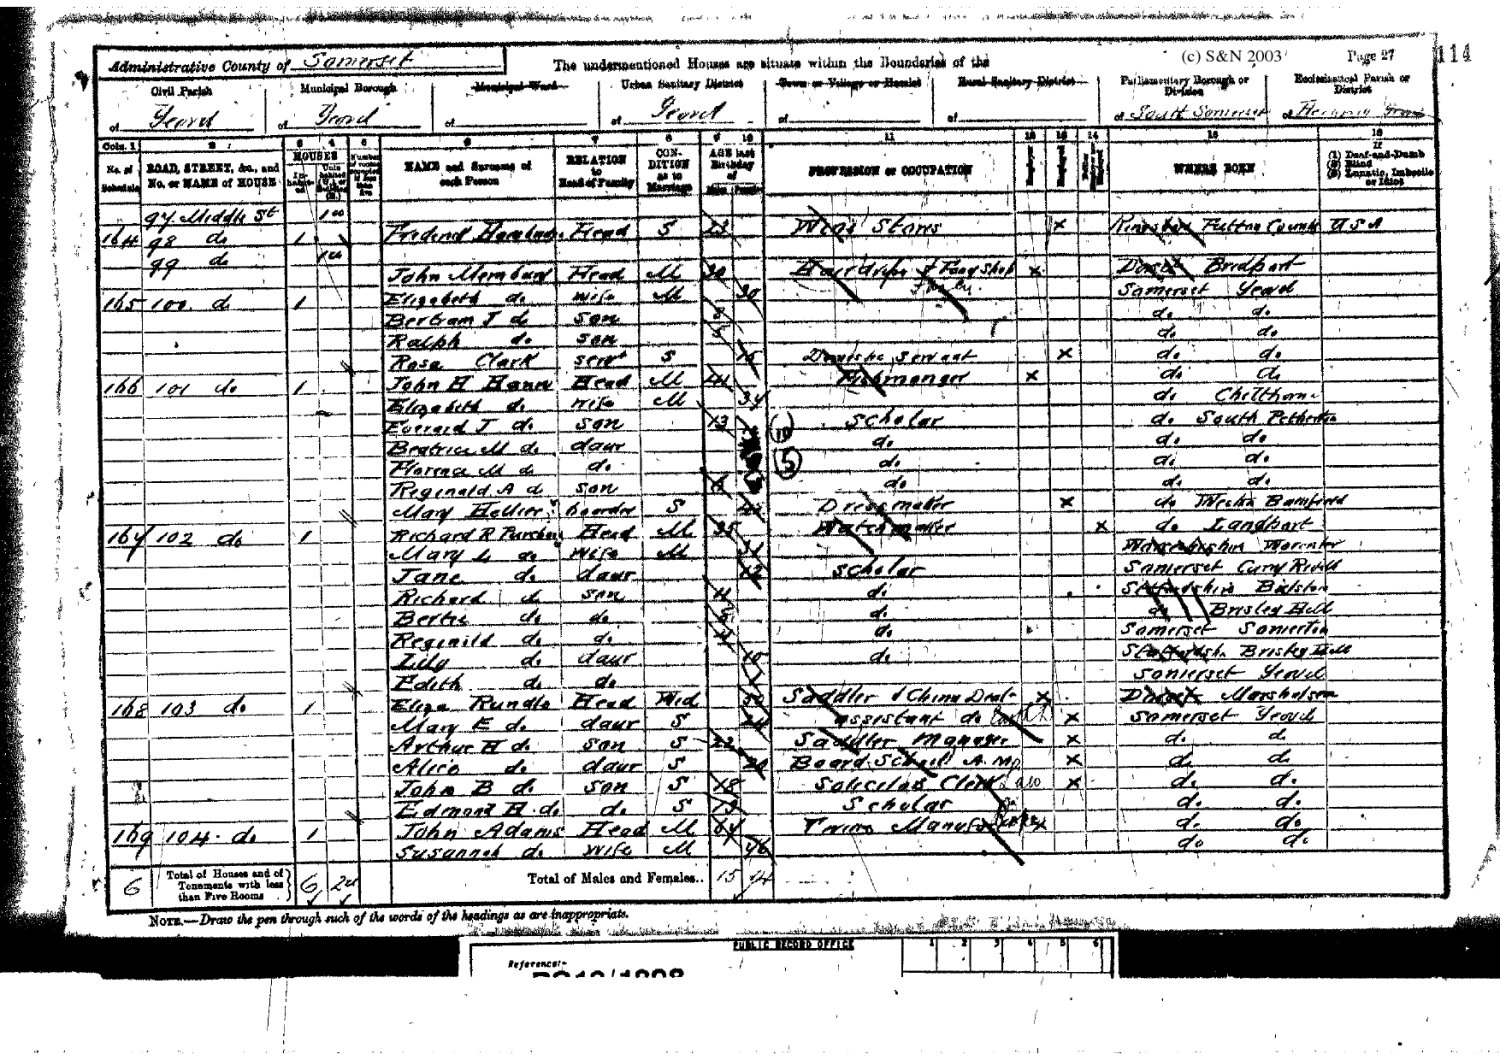 114
Administrative County of Somerset The undermentioned Houses are situate within the Boundaries of the (c) S&N 2003 Page 27
Civil Parish Municipal Borough Municipal Ward Urban Sanitary District Town or Village or Hamlet Rural Sanitary District Parliamentary Borough or Division Ecclesiastical Parish or District
of Yeovil of Yeovil of of Yeovil of of of South Somerset of
Cols. 1 2 3 4 5 6 7 8 9 10 11 12 13 14 15 16
No. of Schedule ROAD, STREET, &c., and No. or NAME of HOUSE HOUSES NAME and Surname of each Person RELATION to Head of Family CONDITION as to Marriage AGE last Birthday of PROFESSION or OCCUPATION Employer Employed WHERE BORN If (1) Deaf-and-Dumb (2) Blind (3) Lunatic, Imbecile or Idiot
97 Middle St 1 u
164 98 do 1 Head S Stores x Fulton County USA
99 do 1 u
John Membury Head M 30 Hairdresser & Fancy Shop x Dorset Bridport
165 100 do 1 Elizabeth do Wife M 30 Somerset Yeovil
Bertram J do Son do do
Ralph do Son do do
Rosa Clark Servt S 16 Domestic Servant x do do
166 101 do 1 John H Hann Head M 41 Fishmonger x do do
Elizabeth do Wife M 34 do Chilthorne
Everard J do Son 13 Scholar do South Petherton
Beatrice M do daur do do do
Florence M do do do do do
Reginald A do Son do do do
Mary Hellier boarder S Dressmaker x do Bamfield
167 102 do 1 Richard R Head M 35 Watchmaker x do Langport
Mary L do Wife M Worcester
Jane do daur 12 Scholar Somerset Curry Rivel
Richard do Son 11 do Staffordshire Bilston
Bertie do do do do Brisley Hill
Reginild do do do Somerset Somerton
Lily do daur do Staffordsh. Brisley Hill
Edith do do Somerset Yeovil
168 103 do 1 Eliza Rundle Head Wid Saddler & China Deal x Dorset Marshalsea
Mary E do daur S 24 assistant do x Somerset Yeovil
Arthur H do Son S 22 Saddler Manager x do do
Alice do daur S 20 Board School x do do
John B do Son S 18 Solicitors Clerk x do do
Edmond H do do S Scholar do do
169 104 do 1 John Adams Head M 64 Twine Manuf x do do
Susannah do Wife M do do
6 Total of Houses and of Tenements with less than Five Rooms 6 2u Total of Males and Females.. 15 14
NOTE.—Draw the pen through such of the words of the headings as are inappropriate.
PUBLIC RECORD OFFICE 1 2 3 4 5 6
Reference:-